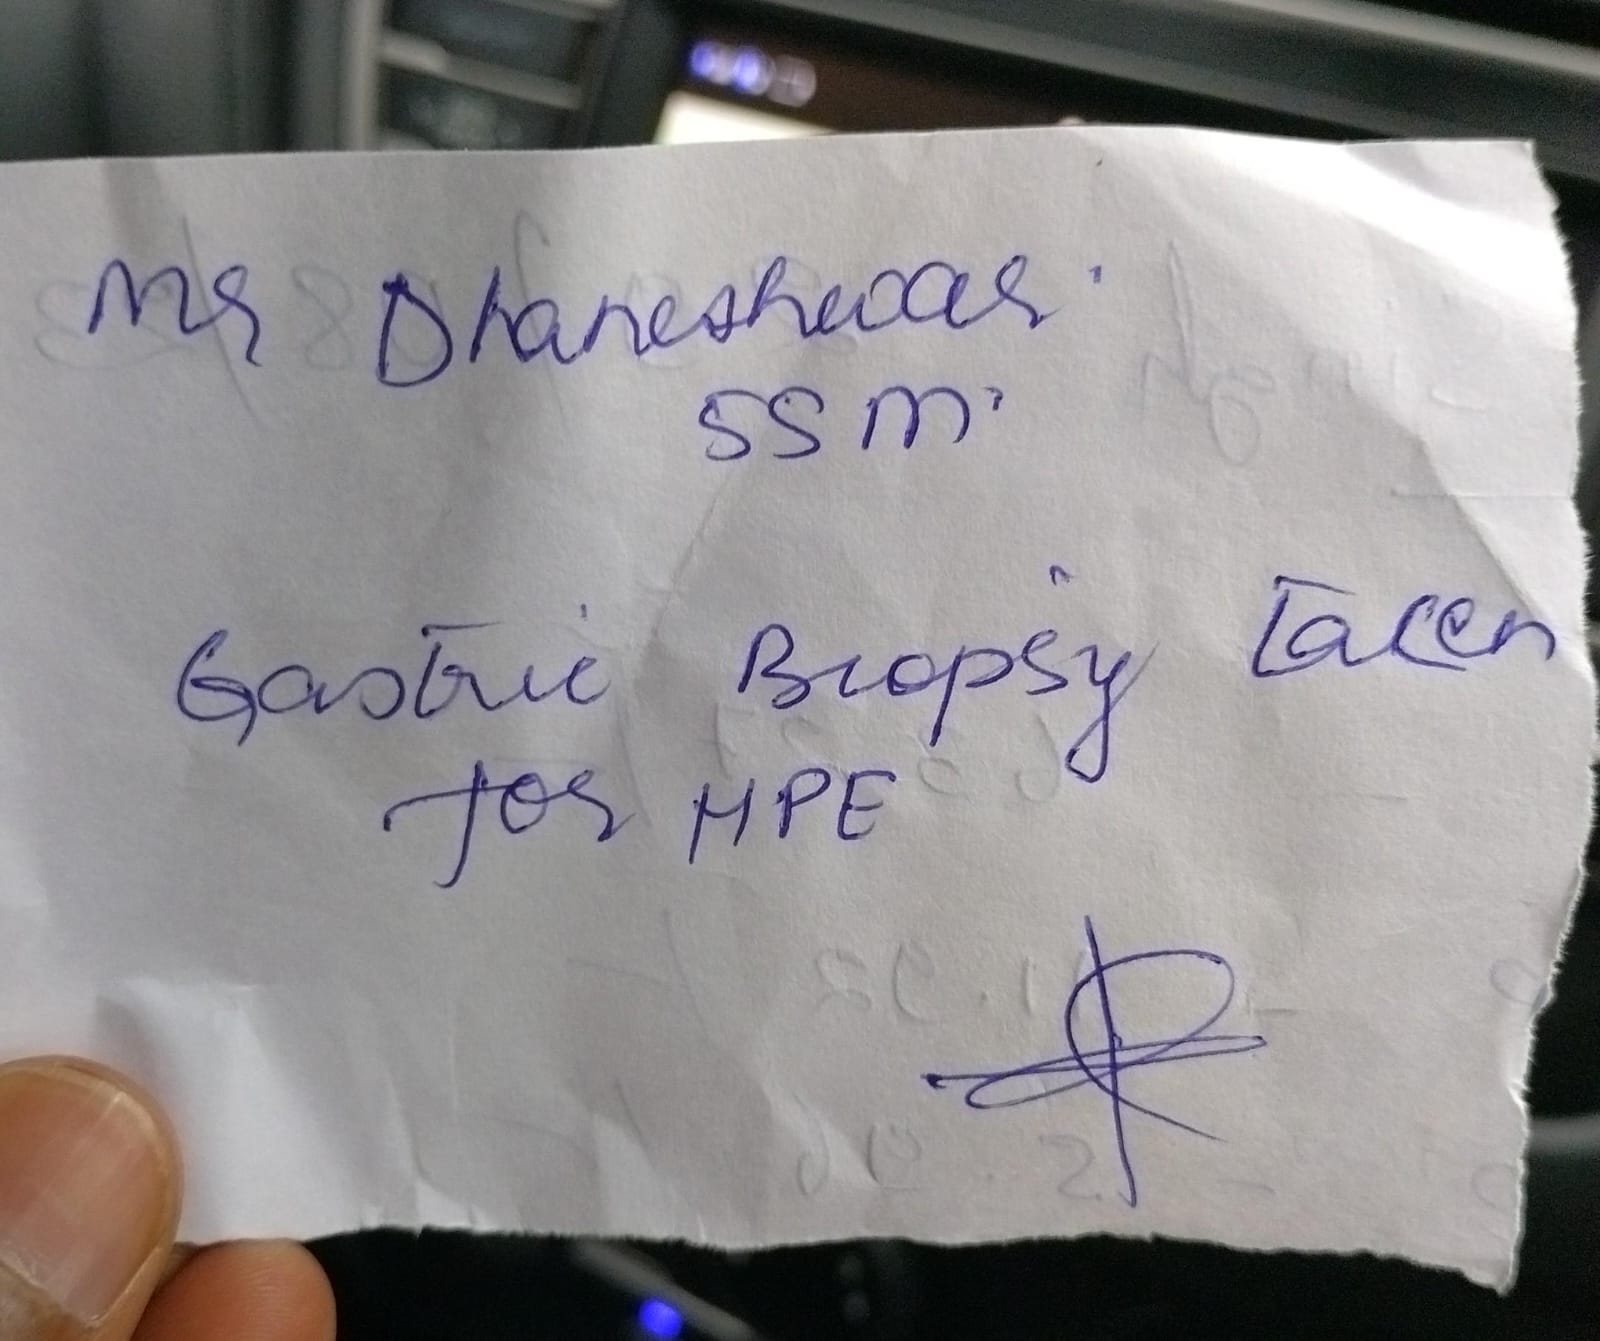 Mr Dhaneshwar.
55 M.
Gastric Biopsy taken
for HPE